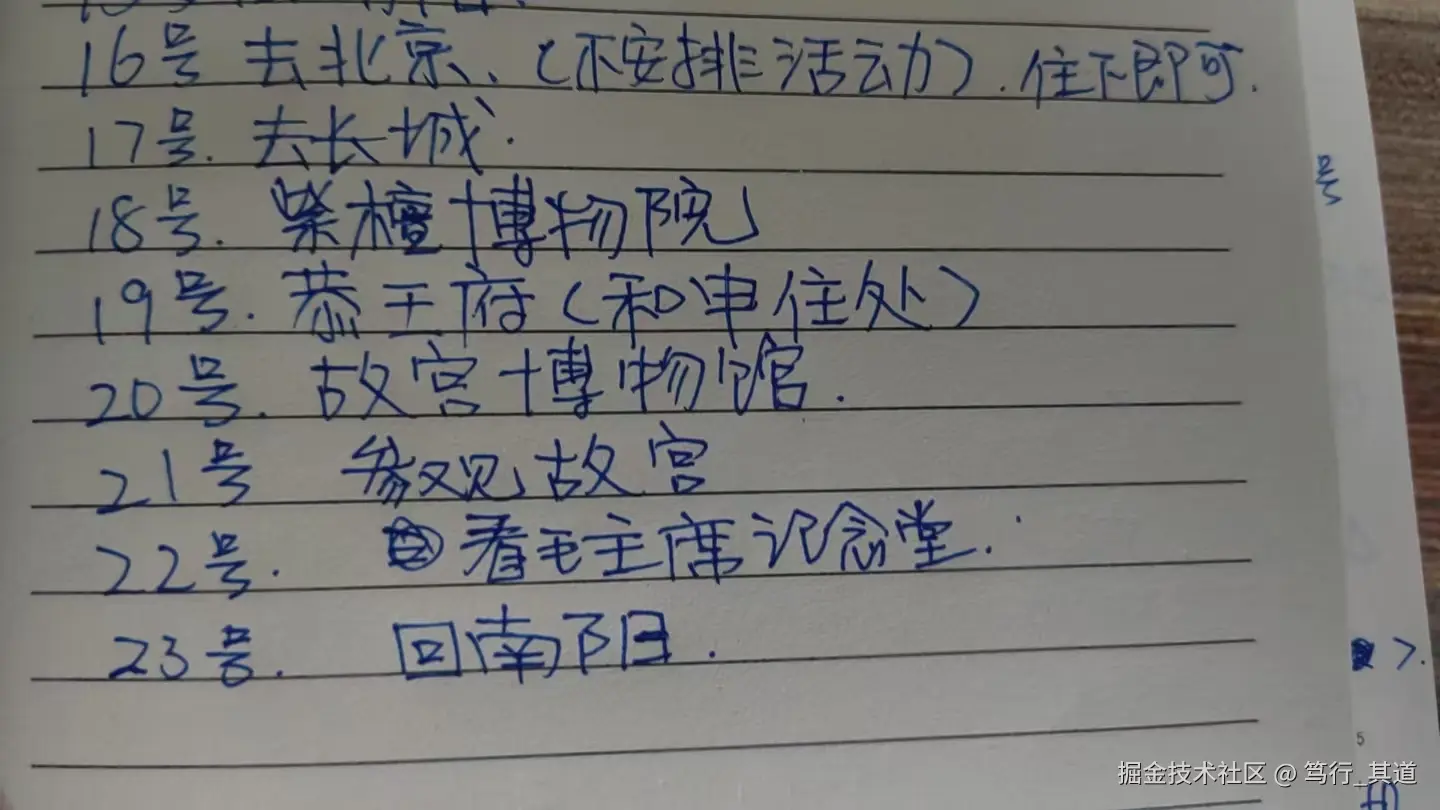 16号 去北京、(不安排活动).住下即可.
17号. 去长城.
18号. 紫檀博物院
19号. 恭王府(和申住处)
20号. 故宫博物馆.
21号 参观故宫
22号. 看毛主席记念堂.
23号. 回南阳.
号
5
掘金技术社区 @ 笃行_其道